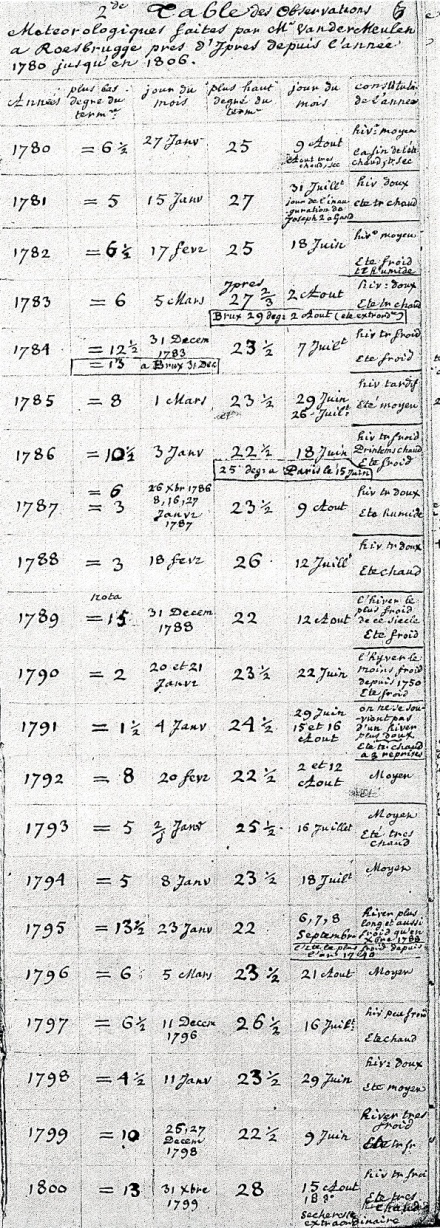 2.de Table des Observations
Meteorologiques faites par Mr. VanderMeulen
a Roesbrugge pres d'Ypres depuis l'année
1780 jusqu'en 1806.
Années plus bas degré du term.e jour du mois plus haut degré du term.e jour du mois constitution de l'année
1780 = 6 ½ 27 Janv 25 9 Aout hiv: moyen
1781 = 5 15 Janv 27 31 Juillt jour de l'inauguration de Joseph 2 a Gand hiv doux ete tr chaud
1782 = 6½ 17 fevr 25 18 Juin hivr moyen Ete froid et humide
1783 = 6 5 Mars Ypres 27 ⅔ 2 Aout hiv: doux Ete tr chaud
Brux 29 degs 2 Aout (ete extrordre)
1784 = 12½ 31 Decem 1783 23 ½ 7 Juillt hiv tr froid Ete froid
= 13 a Brux 31 Dec
1785 = 8 1 Mars 23 ½ 29 Juin 26 Juillt hiv tardif Ete moyen
1786 = 10½ 3 Janv 22 ½ 18 Juin hiv tr froid Printems chaud Ete froid
25 deg: a Paris le 15 Juin
1787 = 6 = 3 26 Xbr 1786 8, 16, 27 Janvr 1787 23 ½ 9 Aout hiv tr doux Ete humide
1788 = 3 18 fevr 26 12 Juillt hiv tr doux Ete chaud
nota
1789 = 15 31 Decem 1788 22 12 Aout l'hiver le plus froid de ce siecle Ete froid
1790 = 2 20 et 21 Janvr 23 ½ 22 Juin l'hyver le moins froid depuis 1750 Ete froid
1791 = 1½ 4 Janv 24 ½ 29 Juin 15 et 16 Aout on ne se souvient pas d'un hiver plus doux Ete tr: chaud a 3 reprises
1792 = 8 20 fevr 22 ½ 2 et 12 Aout Moyen
1793 = 5 Janv 25 ½ 16 Juillet Moyen Eté tres chaud
1794 = 5 8 Janv 23 ½ 18 Juilt Moyen
1795 = 13½ 23 Janv 22 6, 7, 8 Septembre hiver plus long et aussi froid qu'en Xbre 1788
l'été le plus froid depuis l'an: 1740
1796 = 6 5 Mars 23 ½ 21 Aout Moyen
1797 = 6½ 11 Decem 1796 26 ½ 16 Juilt hiv peu froid Ete chaud
1798 = 4½ 11 Janv 23 ½ 29 Juin hiv: doux Ete moyen
1799 = 10 26, 27 Decem 1798 22 ½ 9 Juin hiver tres froid Ete tr fr
1800 = 13 31 Xbre 1799 28 15 Aout hiv tr froi Ete tres chaud
secheresse extraordinaire